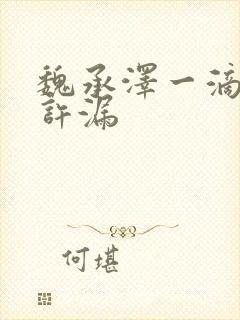 魏承澤一滴
許漏
何堪